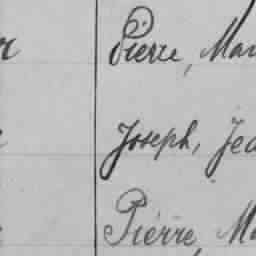 Pierre, Mar
Joseph, Jea
Pierre, Ma